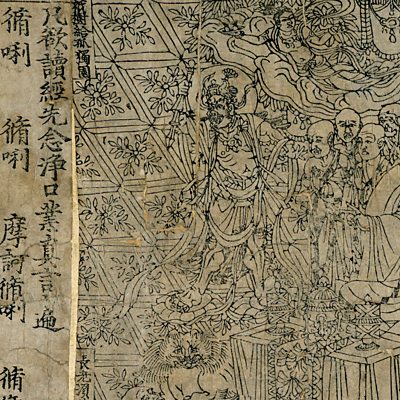 祇樹給孤獨園
長老須
凡欲讀經先念淨口業真言一遍
脩唎 脩唎 摩訶脩唎 脩